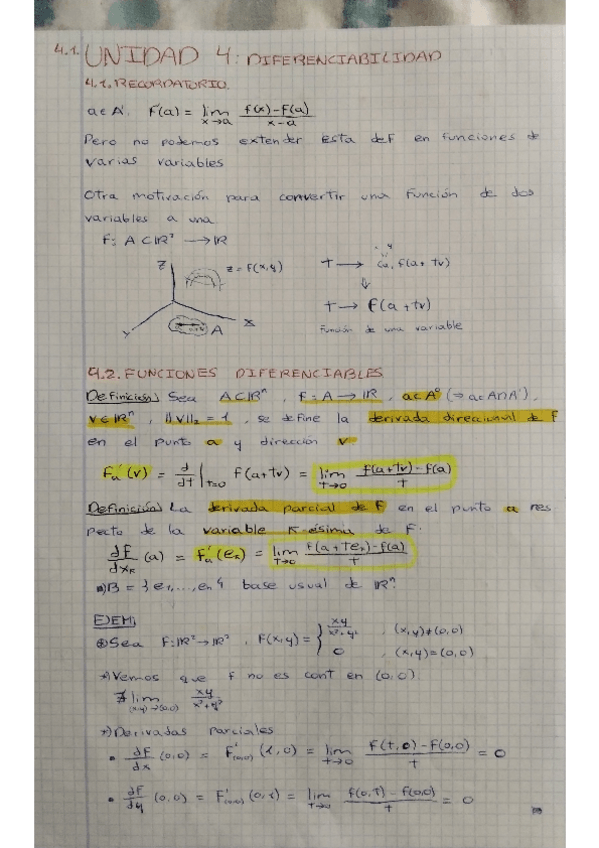 4.1. UNIDAD 4: DIFERENCIABILIDAD
4.1. RECORDATORIO.
a∈A'. F'(a) = lim x→a f(x)-f(a) / x-a
Pero no podemos extender esta def en funciones de
varias variables
Otra motivación para convertir una función de dos
variables a una
F: A⊂ℝ² → ℝ
z z = F(x,y) T →
(a, f(a+tv)
y x A T → f(a+tv)
Función de una variable
4.2. FUNCIONES DIFERENCIABLES
Definición) Sea A⊂ℝⁿ, f: A → ℝ, a∈A° (⇒ a∈A∩A'),
v∈ℝⁿ, ||v||₂ = 1, se define la derivada direccional de f
en el punto a y dirección v.
Fa'(v) = d/dt |t=0 f(a+tv) = lim T→0 f(a+tv)-f(a) / T
Definición) La derivada parcial de F en el punto a res
pecto de la variable k-ésima de F.
dF/dxk (a) = Fa'(ek) = lim T→0 f(a+Tek)-f(a) / T
B = {e1,...,en} base usual de ℝⁿ
EJEM)
Sea F: ℝ²→ℝ², F(x,y) = } xy / x²+y² , (x,y)≠(0,0)
0 , (x,y)=(0,0)
*) Vemos que f no es cont en (0,0)
∄ lim (x,y)→(0,0) xy / x²+y²
*) Derivadas parciales
• dF/dx (0,0) = F'(0,0) (1,0) = lim T→0 F(t,0)-F(0,0) / T = 0
• dF/dy (0,0) = F'(0,0) (0,1) = lim T→0 f(0,T)-f(0,0) / T = 0